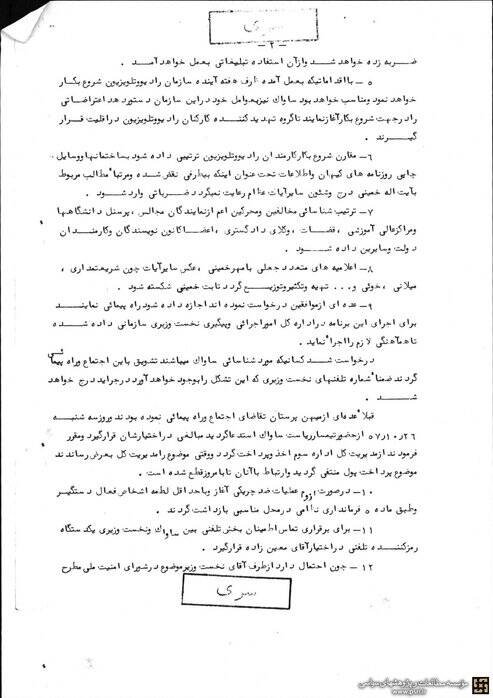 سری
- ۲ -
ضربه زده خواهد شد و از آن استفاده تبلیغاتی بعمل خواهد آمد.
۵ – با اقداماتیکه بعمل آمده ظرف هفته آینده سازمان رادیو و تلویزیون شروع بکار
خواهد نمود و مناسب خواهد بود ساواك نیز بعوامل خود در این سازمان دستور دهد اعتراضاتی
را در جهت شروع بکار آغاز نمایند تا گروه تهدید کننده کارکنان رادیو و تلویزیون در اقلیت قرار
گیرند.
۶ – مقارن شروع بکار کارمندان رادیو و تلویزیون ترتیبی داده شود بساختمانها و وسایل
چاپی روزنامه های کیهان و اطلاعات تحت عنوان اینکه بیطرفی نقض شده و مرتباً مطالب مربوط
بآیت اله خمینی درج و شئون سایر آیات عظام رعایت نمیگردد ضرباتی وارد شود.
۷ – ترتیب شناسائی مخالفین و محرکین اعم از نمایندگان مجالس، پرسنل دانشگاهها
و مراکز عالی آموزشی، قضات، وکلای دادگستری، اعضا کانون نویسندگان و کارمندان
دولت و سایرین داده شود.
۸ – اعلامیه های متعدد جعلی با مهر خمینی، عکس سایر آیات چون شریعتمداری،
میلانی، خوئی و... تهیه و تکثیر و توزیع گردد تا بت خمینی شکسته شود.
۹ – عده ای از موافقین درخواست نموده اند اجازه داده شود راه پیمائی نمایند
برای اجرای این برنامه در اداره کل امور اجرائی و پیگیری نخست وزیری سازمانی داده شده
تا هماهنگی لازم را اجرا نماید.
درخواست شد کسانیکه مورد شناسائی ساواك میباشند تشویق باین اجتماع و راه پیمائی
گردند ضمناً شماره تلفنهای نخست وزیری که این تشکل را بوجود خواهد آورد در جراید درج خواهد
شد.
قبلاً عده‌ای از میهن پرستان تقاضای اجتماع و راه پیمائی نموده بودند و روز سه شنبه
۵۷/۱۰/۲۶ از حضور تیمسار ریاست ساواك استدعا گردید مبالغی در اختیارشان قرار گیرد و مقرر
فرمودند از مدیریت کل اداره سوم اخذ و پرداخت گردد و وقتی موضوع را مدیریت کل بعرض رساندند
موضوع پرداخت پول منتفی گردید و ارتباط با آنان تا بامروز قطع شده است.
۱۰ – در صورت لزوم عملیات ضد چریکی آغاز و با حداقل لطمه اشخاص فعال دستگیر
و طبق ماده ۵ فرمانداری نظامی در محل مناسبی بازداشت گردند.
۱۱ – برای برقراری تماس اطمینان بخش تلفنی بین ساواك و نخست وزیری یکدستگاه
رمز کننده تلفنی در اختیار آقای معین زاده قرار گیرد.
۱۲ – چون احتمال دارد از طرف آقای نخست وزیر موضوع در شورای امنیت ملی مطرح
سری
مؤسسه مطالعات و پژوهشهای سیاسی
www.psri.ir